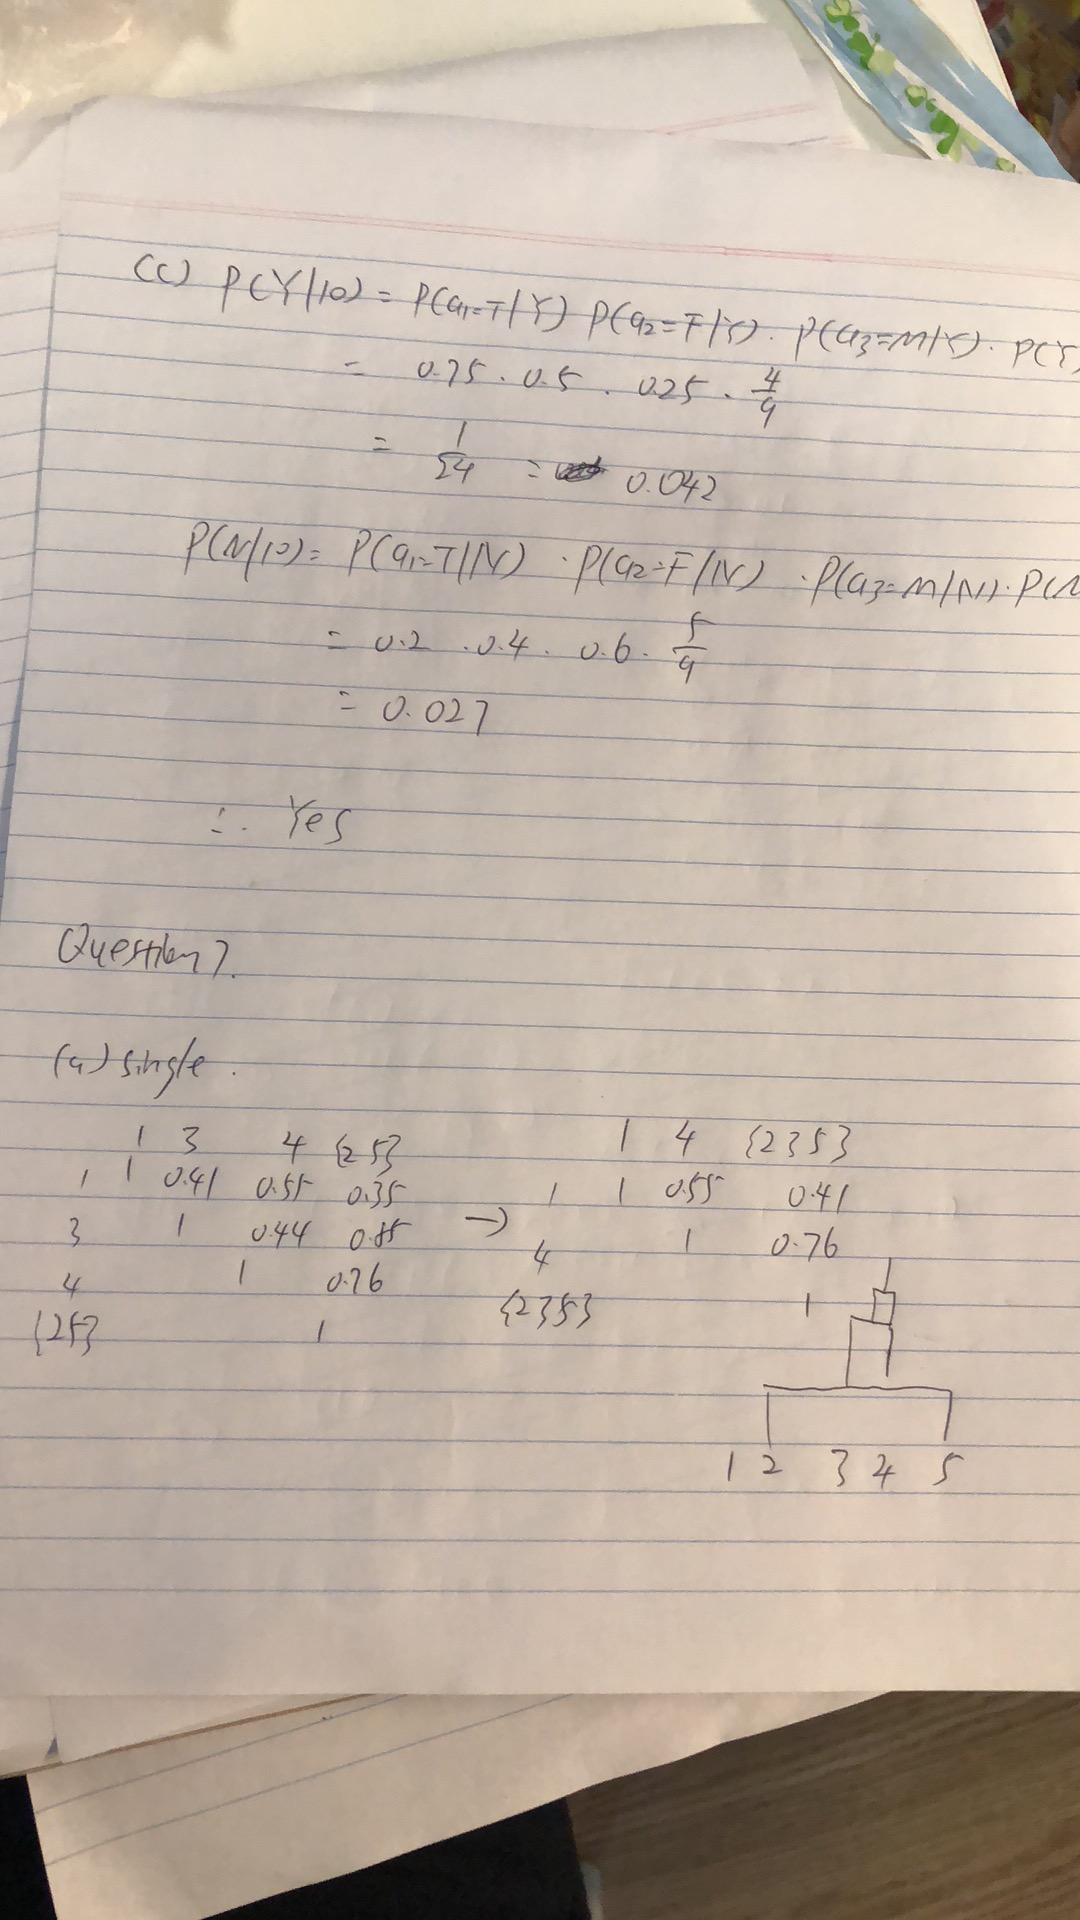 (c) P(Y/10) = P(a1=T/Y) P(a2=F/Y) · P(a3=M/Y) · P(Y
= 0.75 · 0.5 · 0.25 · 4/9
= 1/24 = 0.042
P(N/10) = P(a1=T/N) · P(a2=F/N) · P(a3=M/N) · P(N
= 0.2 · 0.4 · 0.6 · 5/9
= 0.027
∴ Yes
Question 7.
(a) single.
1 3 4 {25}
1 1 0.41 0.55 0.35
3 1 0.44 0.85
4 1 0.76
{25} 1
→
1 4 {235}
1 1 0.55 0.41
4 1 0.76
{235} 1
1 2 3 4 5